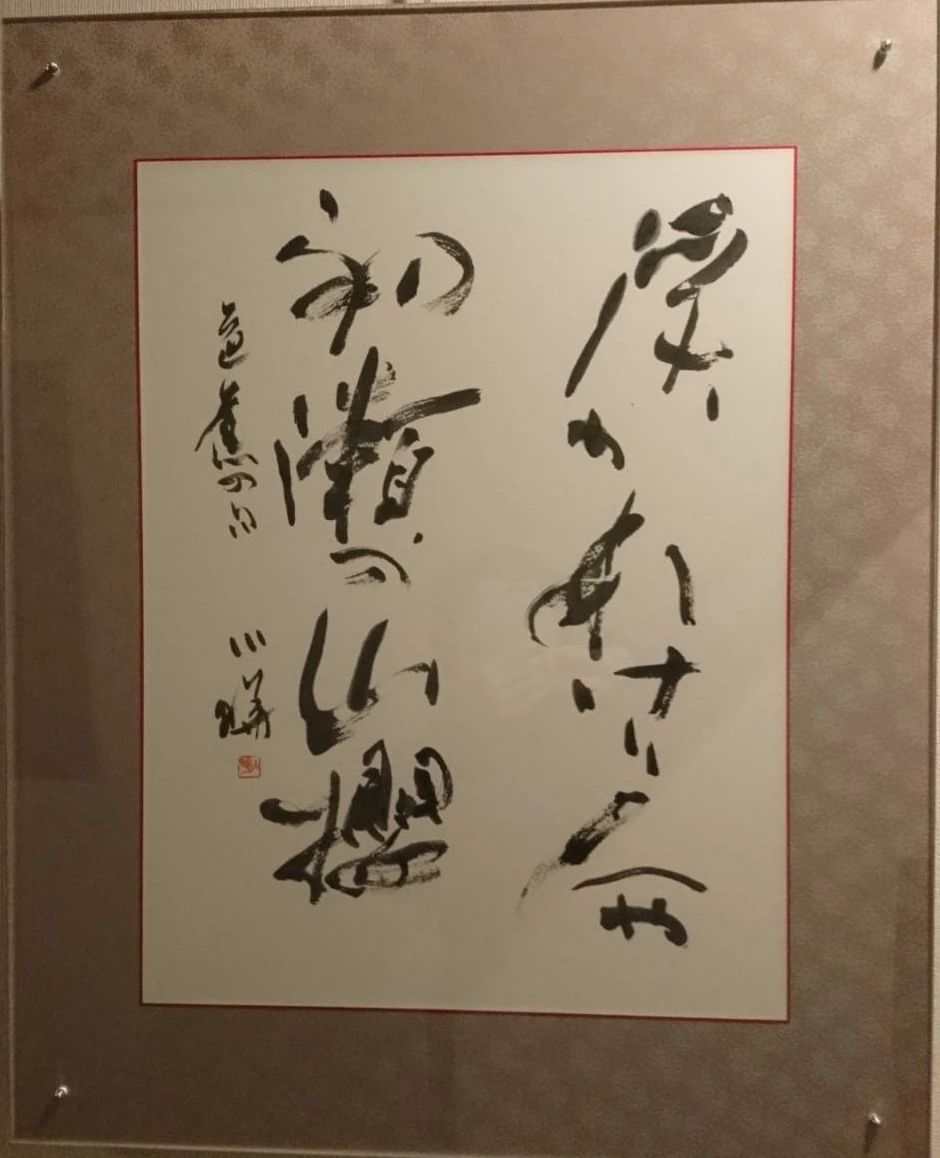 浮かれける人や
初瀬の山櫻
芭蕉の句